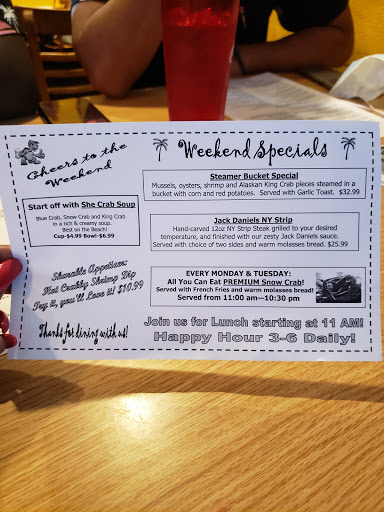 Cheers to the
Weekend
Start off with She Crab Soup
Blue Crab, Snow Crab and King Crab
in a rich & creamy soup.
Best on the Beach!
Cup-$4.99 Bowl-$6.99
Sharable Appetizer:
Hot Crabby Shrimp Dip
Try it, you'll Love it! $10.99
Thanks for dining with us!
Weekend Specials
Steamer Bucket Special
Mussels, oysters, shrimp and Alaskan King Crab pieces steamed in a
bucket with corn and red potatoes. Served with Garlic Toast. $32.99
Jack Daniels NY Strip
Hand-carved 12oz NY Strip Steak grilled to your desired
temperature, and finished with our zesty Jack Daniels sauce.
Served with choice of two sides and warm molasses bread. $25.99
EVERY MONDAY & TUESDAY:
All You Can Eat PREMIUM Snow Crab!
Served with French Fries and warm molasses bread!
Served from 11:00 am—10:30 pm
Join us for Lunch starting at 11 AM!
Happy Hour 3-6 Daily!